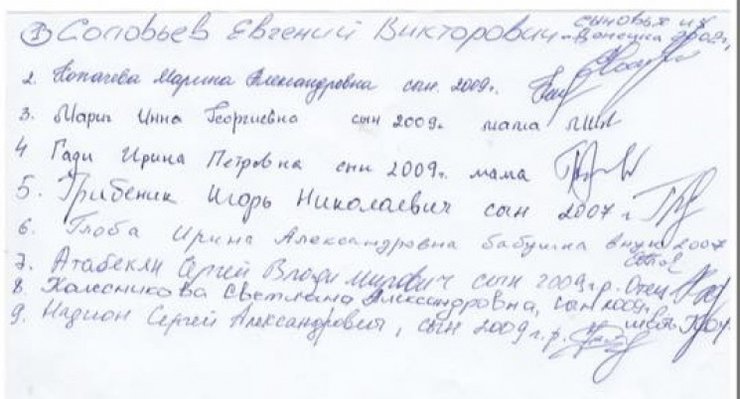 1 Соловьев Евгений Викторович - сыновья из Донецка 2009г,
2. Копачева Марина Александровна сын 2009г.
3. Марич Инна Георгиевна сын 2009г мама
4 Гади Ирина Петровна сын 2009г. мама
5. Грибеник Игорь Николаевич сын 2007г
6. Глоба Ирина Александровна бабушка внук 2007
7. Атабекян Сергей Владимирович сын 2009г.р. Отец
8. Колесникова Светлана Александровна, сын 2009г.
9. Надион Сергей Александрович, сын 2009г.р.